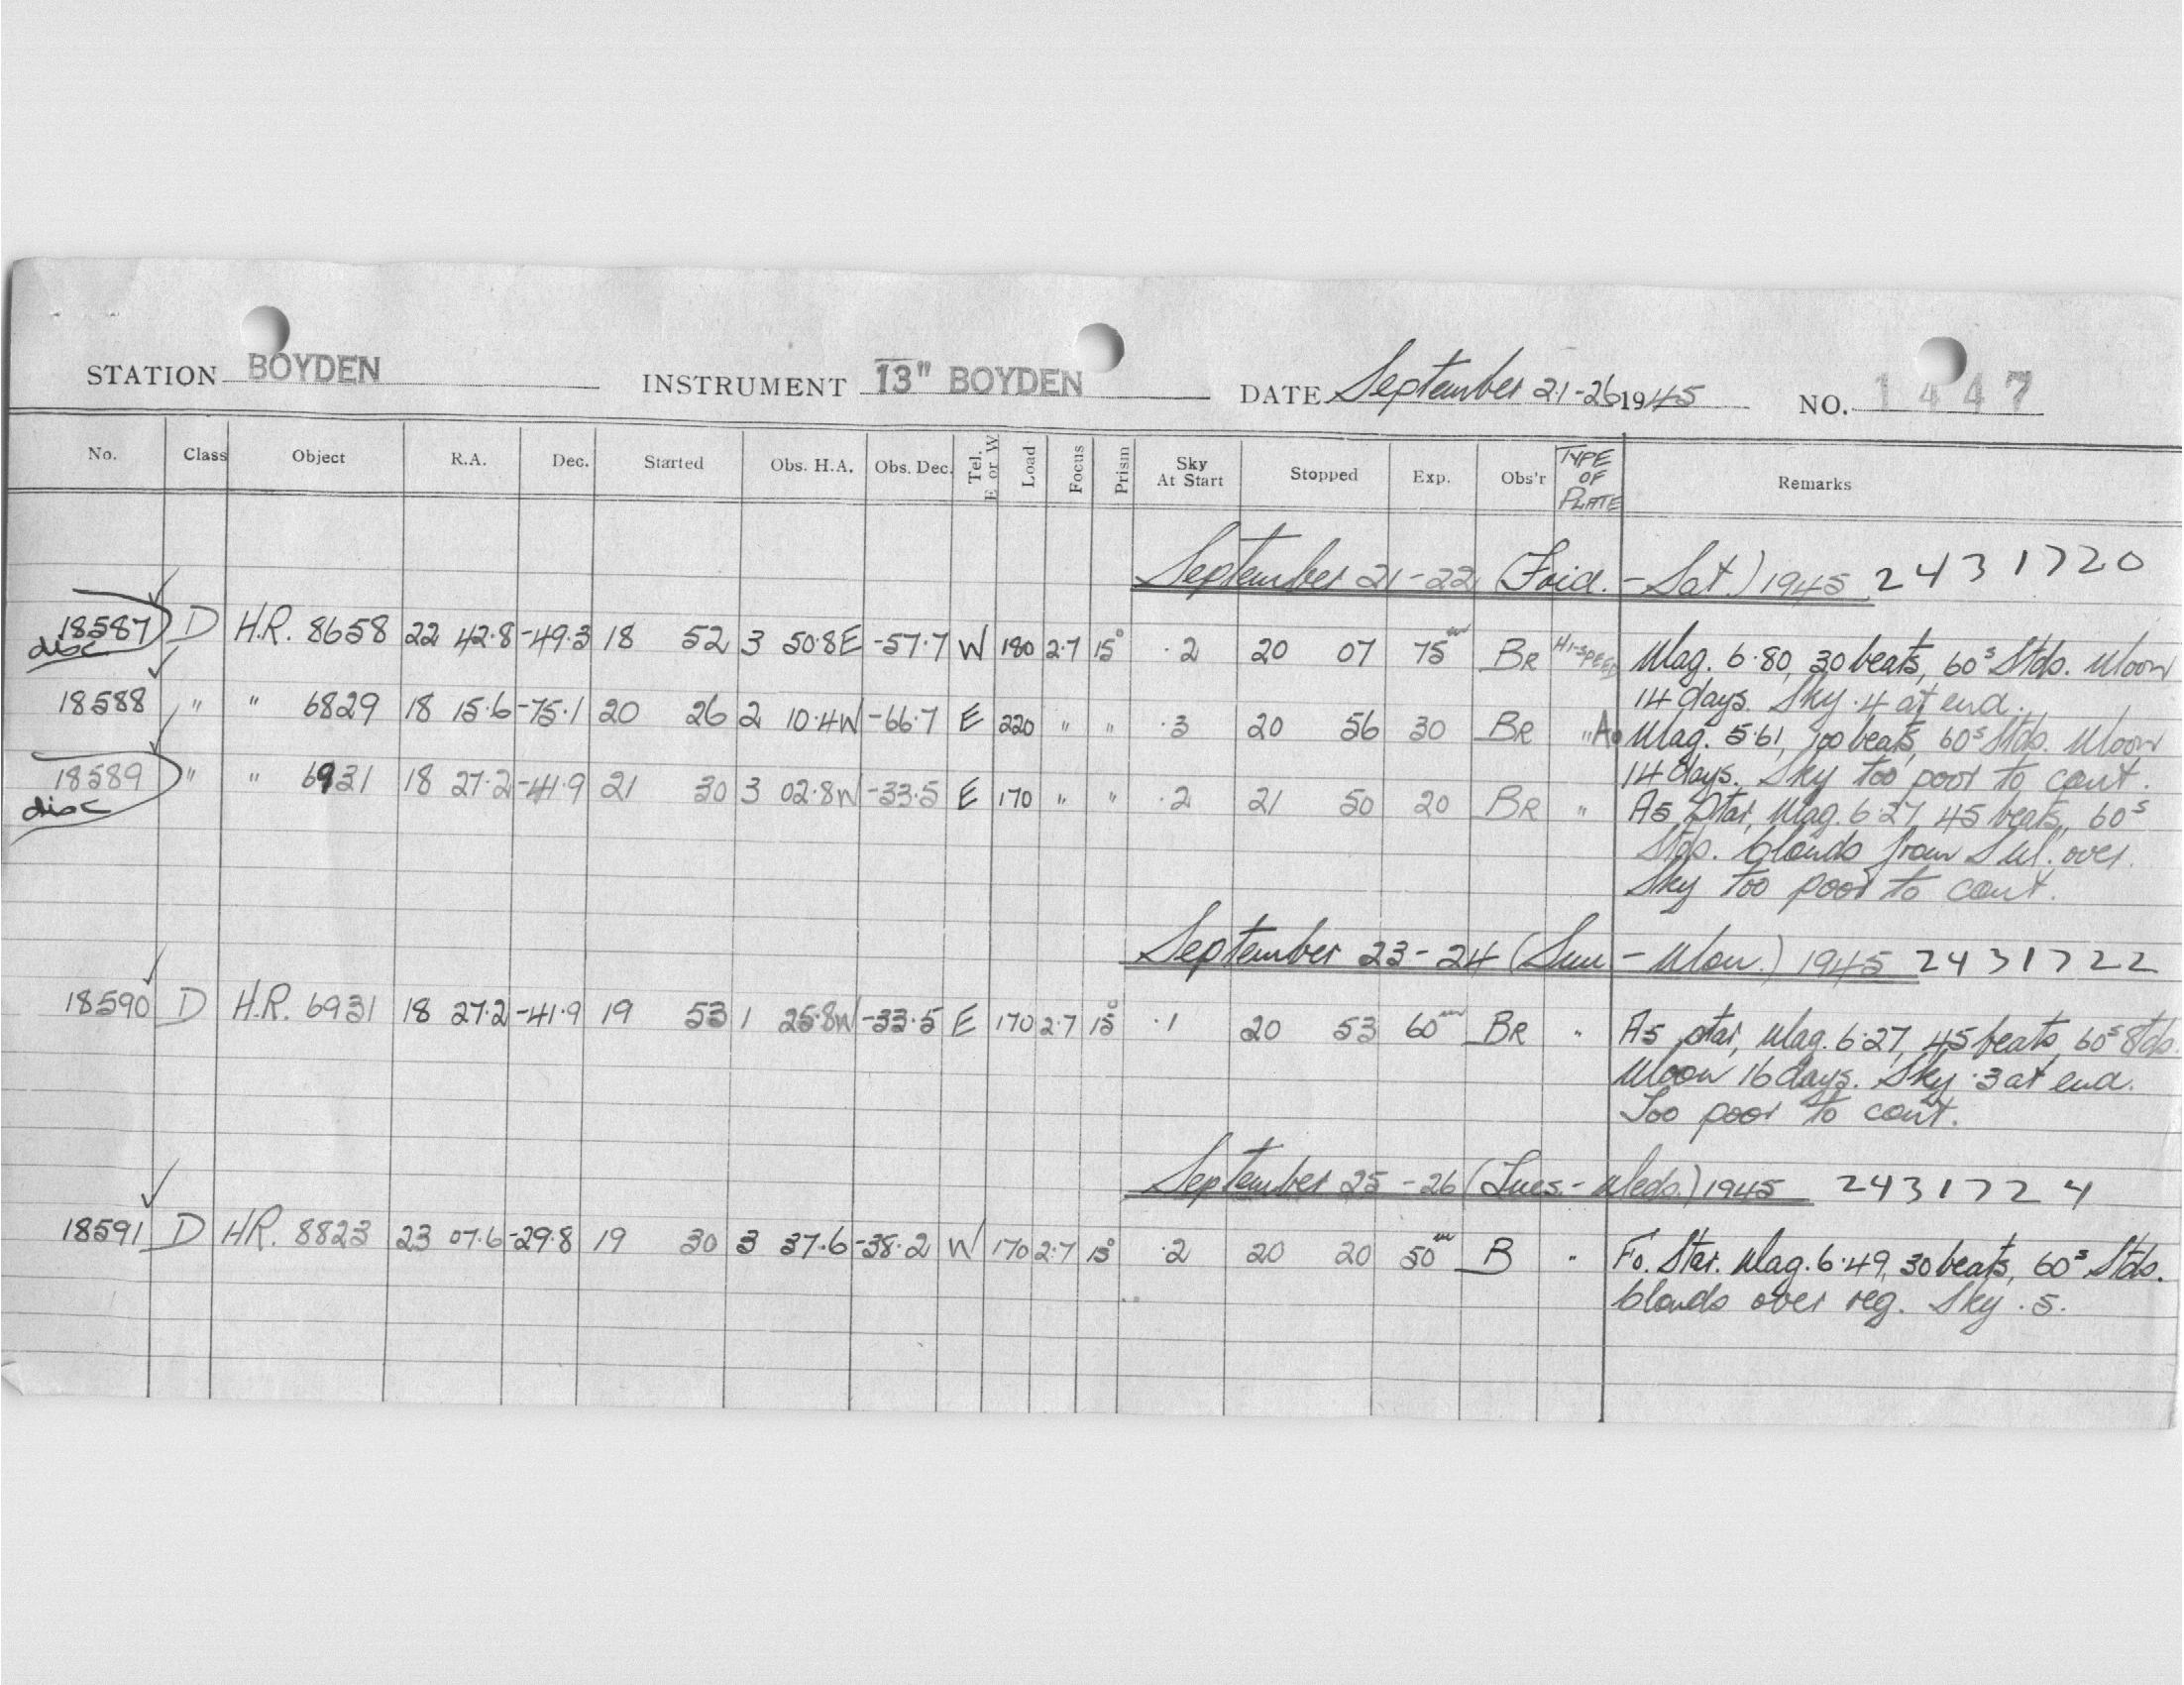 STATION BOYDEN INSTRUMENT 13" BOYDEN DATE September 21-26 1945 NO. 1447
No. Class Object R.A. Dec. Started Obs. H.A. Obs. Dec. Tel. E or W Load Focus Prism Sky At Start Stopped Exp. Obs'r TYPE OF PLATE Remarks
September 21-22 (Frid. - Sat.) 1945 2431720
18587 D H.R. 8658 22 42.8 -49.3 18 52 3 50.8E -57.7 W 180 2.7 15° .2 20 07 75m BR HI-SPEED Mag. 6.80, 30 beats, 60s Stds. Moon
disc 14 days. Sky .4 at end.
18588 " " 6829 18 15.6 -75.1 20 26 2 10.4W -66.7 E 220 " " .3 20 56 30 BR " Ao Mag. 5.61, 100 beats, 60s Stds. Moon
14 days. Sky too poor to cont.
18589 " " 6931 18 27.2 -41.9 21 30 3 02.8W -33.5 E 170 " " .2 21 50 20 BR " A5 Star, Mag. 6.27, 45 beats, 60s
disc Stds. Clouds from S.W. over.
Sky too poor to cont.
September 23-24 (Sun - Mon.) 1945 2431722
18590 D H.R. 6931 18 27.2 -41.9 19 53 1 25.8W -33.5 E 170 2.7 15° .1 20 53 60m BR " A5 star, Mag. 6.27, 45 beats, 60s Stds.
Moon 16 days. Sky .3 at end.
Too poor to cont.
September 25-26 (Tues. - Weds.) 1945 2431724
18591 D HR. 8823 23 07.6 -29.8 19 30 3 37.6 -38.2 W 170 2.7 15° .2 20 20 50m B " Fo. Star. Mag. 6.49, 30 beats, 60s Stds.
Clouds over reg. Sky .5.